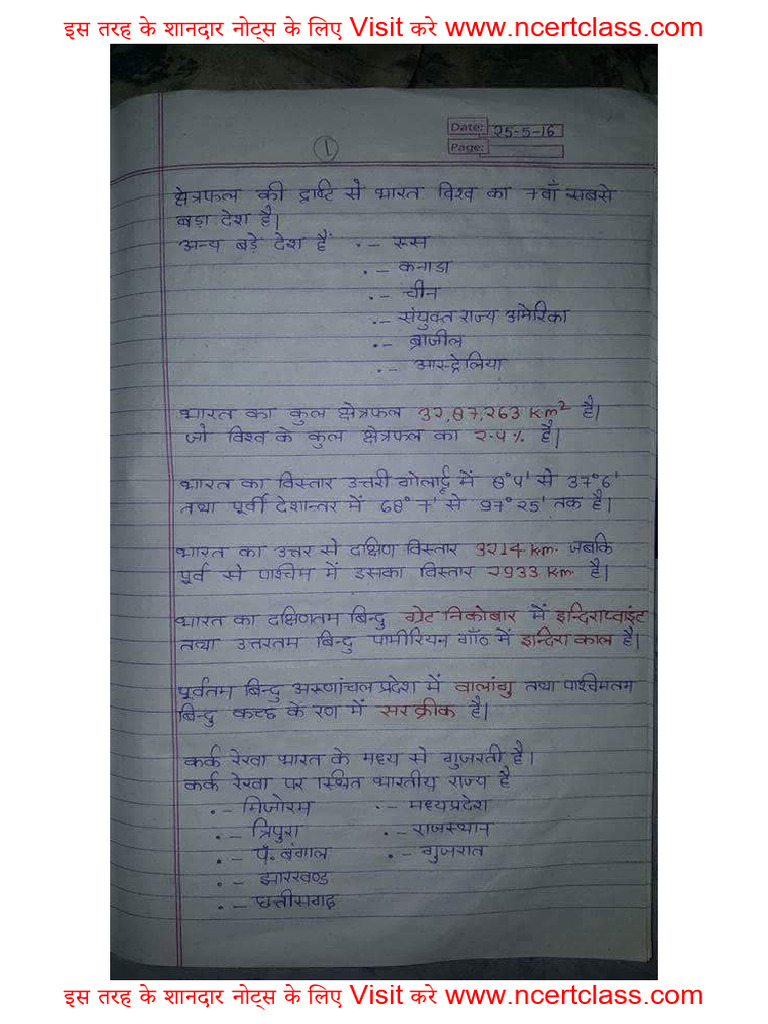 इस तरह के शानदार नोट्स के लिए Visit करे www.ncertclass.com
Date: 25-5-16
1
Page:
क्षेत्रफल की दृष्टि से भारत विश्व का 7वाँ सबसे
बड़ा देश है।
अन्य बड़े देश हैं .- रूस
.- कनाडा
.- चीन
.- संयुक्त राज्य अमेरिका
.- ब्राजील
.- आस्ट्रेलिया
भारत का कुल क्षेत्रफल 32,87,263 Km² है।
जो विश्व के कुल क्षेत्रफल का 2.4% है।
भारत का विस्तार उत्तरी गोलार्द्ध में 8°4' से 37°6'
तथा पूर्वी देशान्तर में 68°7' से 97°25' तक है।
भारत का उत्तर से दक्षिण विस्तार 3214 Km. जबकि
पूर्व से पश्चिम में इसका विस्तार 2933 Km. है।
भारत का दक्षिणतम बिन्दु ग्रेट निकोबार में इन्दिरा प्वाइंट
तथा उत्तरतम बिन्दु पामीरियन गाँठ में इन्दिरा काल है।
पूर्वतम बिन्दु अरुणांचल प्रदेश में वालांगु तथा पाश्चिमतम
बिन्दु कच्छ के रण में सरक्रीक है।
कर्क रेखा भारत के मध्य से गुजरती है।
कर्क रेखा पर स्थित भारतीय राज्य है
.- मिजोरम .- मध्यप्रदेश
.- त्रिपुरा .- राजस्थान
.- पं. बंगाल .- गुजरात
.- झारखण्ड
.- छत्तीसगढ़
इस तरह के शानदार नोट्स के लिए Visit करे www.ncertclass.com